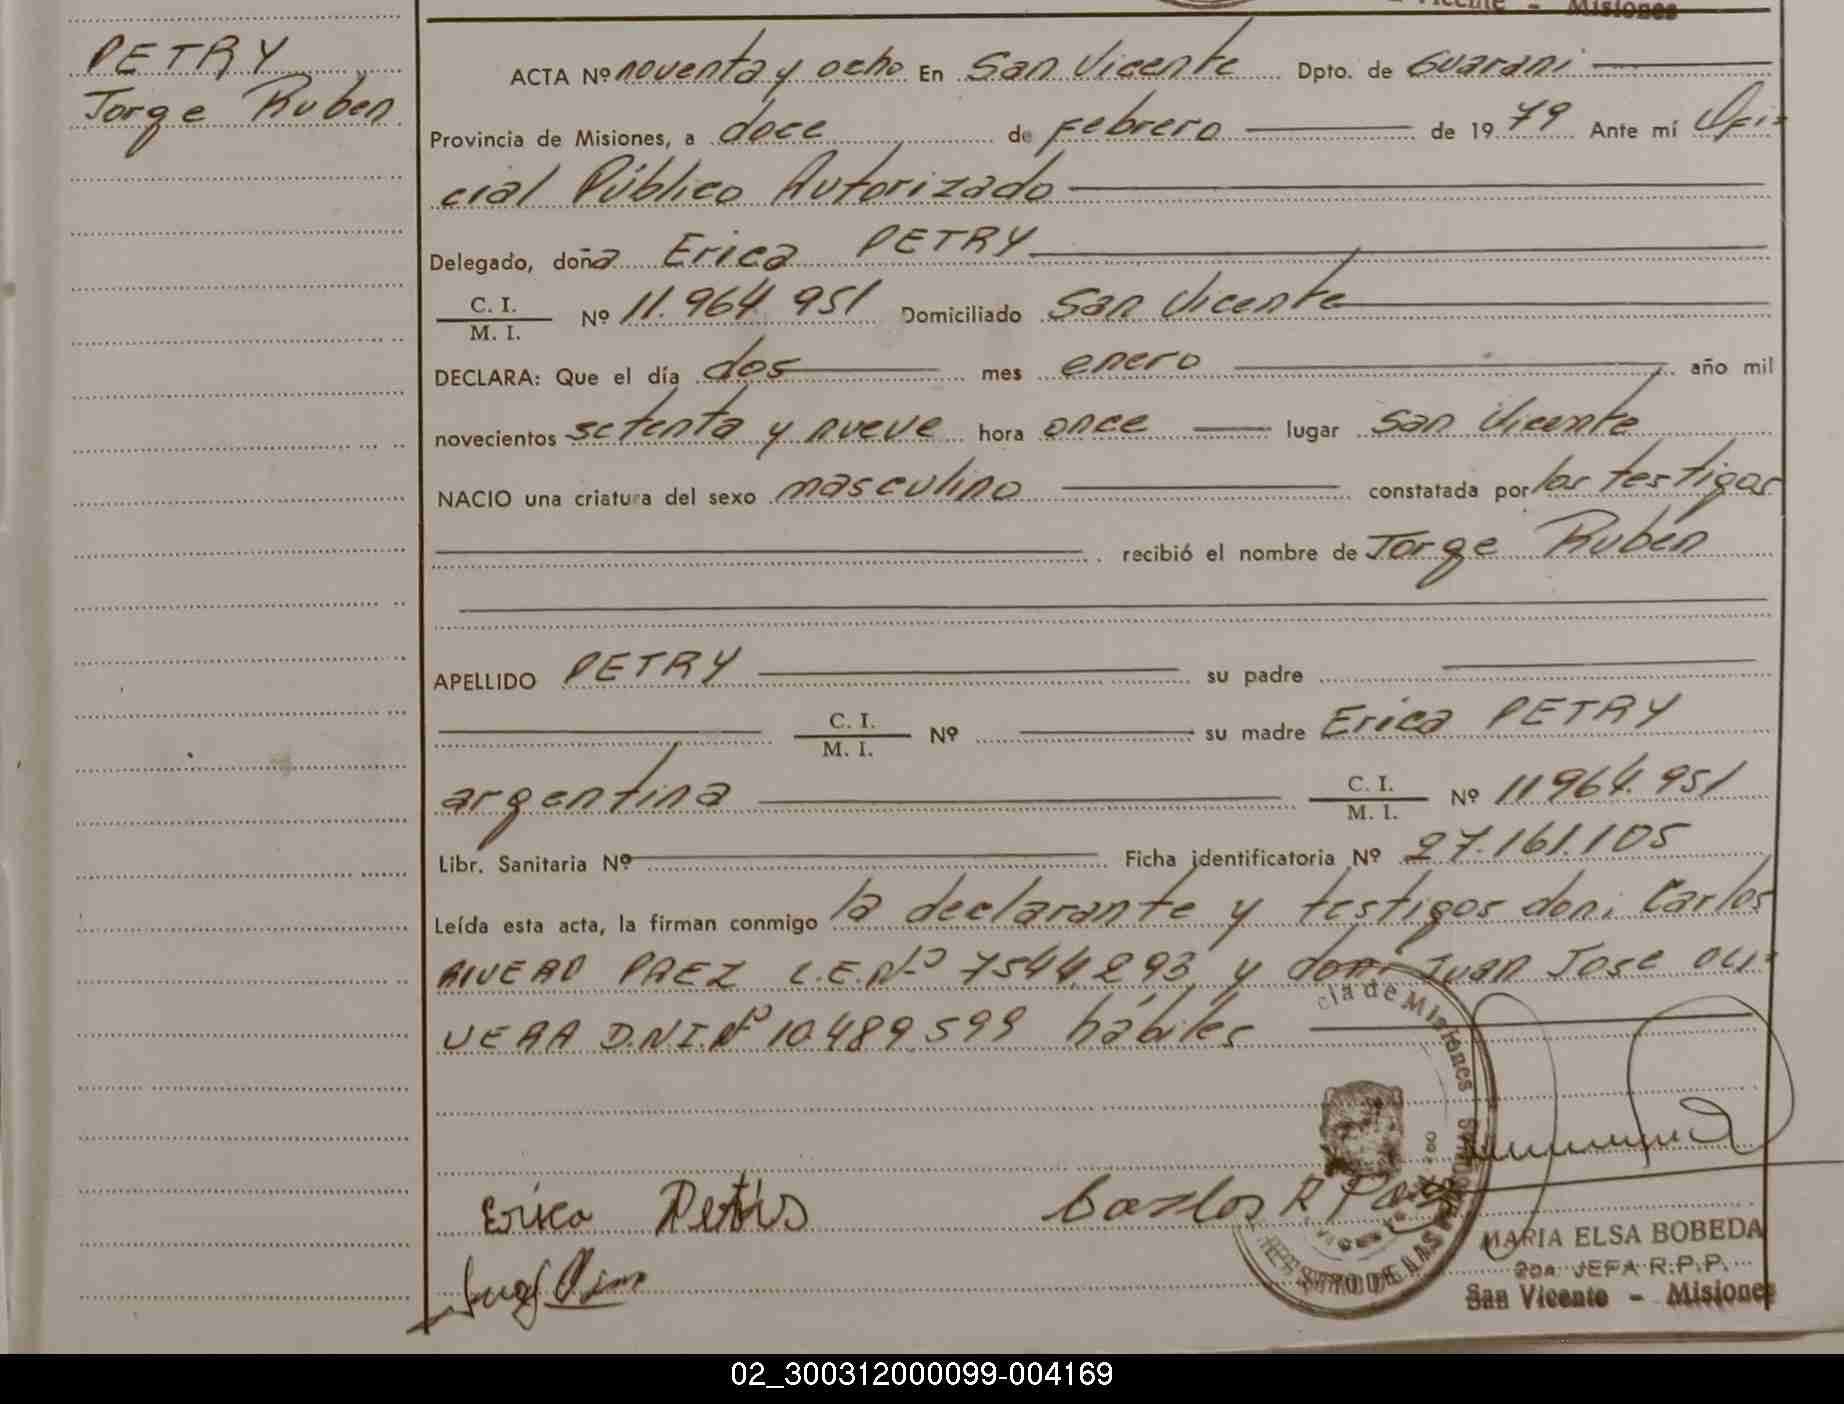 Vicente - Misiones
PETRY
Jorge Ruben
ACTA Nº noventa y ocho En San Vicente Dpto. de Guarani
Provincia de Misiones, a doce de Febrero de 1979 Ante mí Ofi-
cial Público Autorizado
Delegado, doña Erica PETRY
C. I.
M. I. Nº 11.964.951 Domiciliado San Vicente
DECLARA: Que el día dos mes enero año mil
novecientos setenta y nueve hora once lugar San Vicente
NACIO una criatura del sexo masculino constatada por los testigos
recibió el nombre de Jorge Rubén
APELLIDO PETRY su padre
C. I.
M. I. Nº su madre Erica PETRY
argentina C. I.
M. I. Nº 11964.951
Libr. Sanitaria Nº Ficha identificatoria Nº 27.161.105
Leída esta acta, la firman conmigo la declarante y testigos don: Carlos
PAEZ L.E.Nº 7544.293 y don: Juan Jose OLI-
VERA D.N.I.Nº 10.489.599 hábiles
cia de Misiones
Erica
Carlos R Paez
MARIA ELSA BOBEDA
2da JEFA R.P.P.
San Vicente - Misiones
02_300312000099-004169